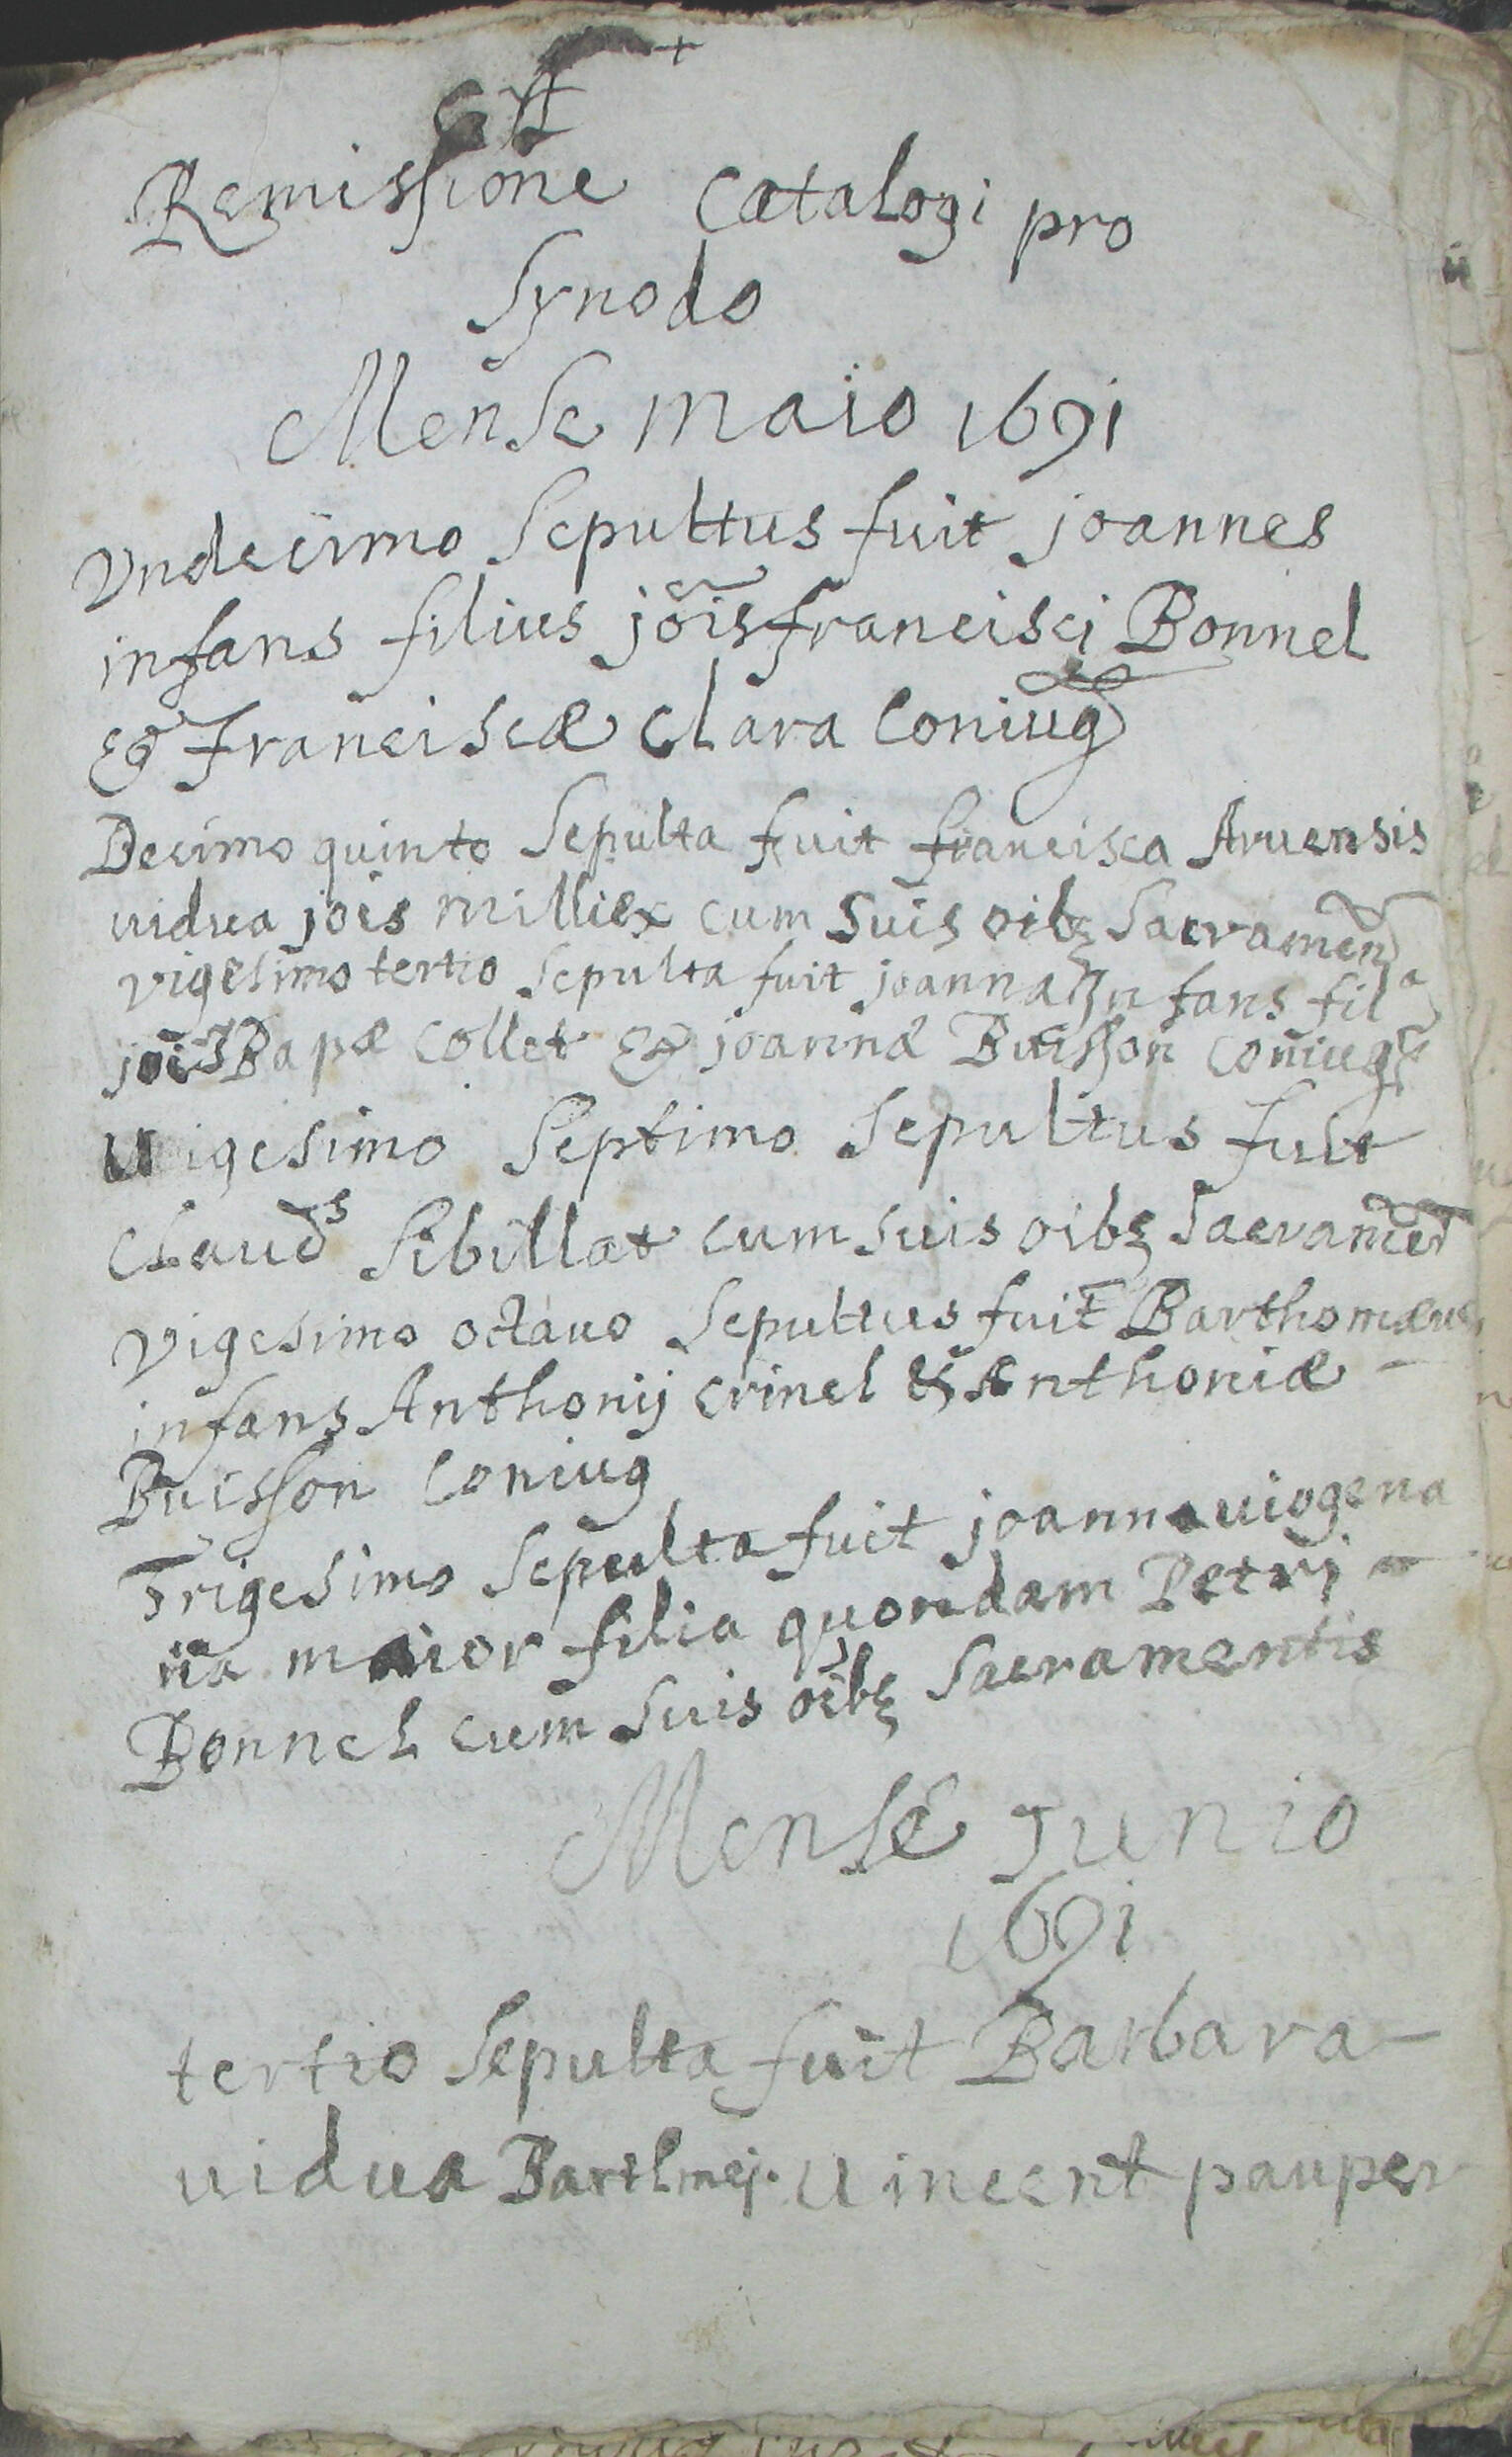 Remissione Catalogi pro
Synodo
Mense maio 1691
Vndecimo Sepultus fuit joannes
infans filius jõis francisci Bonnel
& franciscæ Clara Coniug
Decimo quinto Sepulta fuit francisca Aruensis
uidua jois milliex cum Suis oibz Sacramen
vigesimo tertio Sepulta fuit joanna Infans fila
jois Bapæ Collet & joannæ Buisson Coniug
uigesimo Septimo Sepultus fuit
Claud̃s Sibillat cum Suis oibz Sacramẽ
vigesimo octauo Sepultus fuit Barthomæus
infans Anthonij Crinel & Anthoniæ
Buisson Coniug
Trigesimo Sepulta fuit joanna uiogena
ria maior filia quondam Petri
Bonnel cum Suis oibz Sacramentis
Mense Junio
1691
tertio Sepulta fuit Barbara
uidua Bartlmej. Uincent pauper